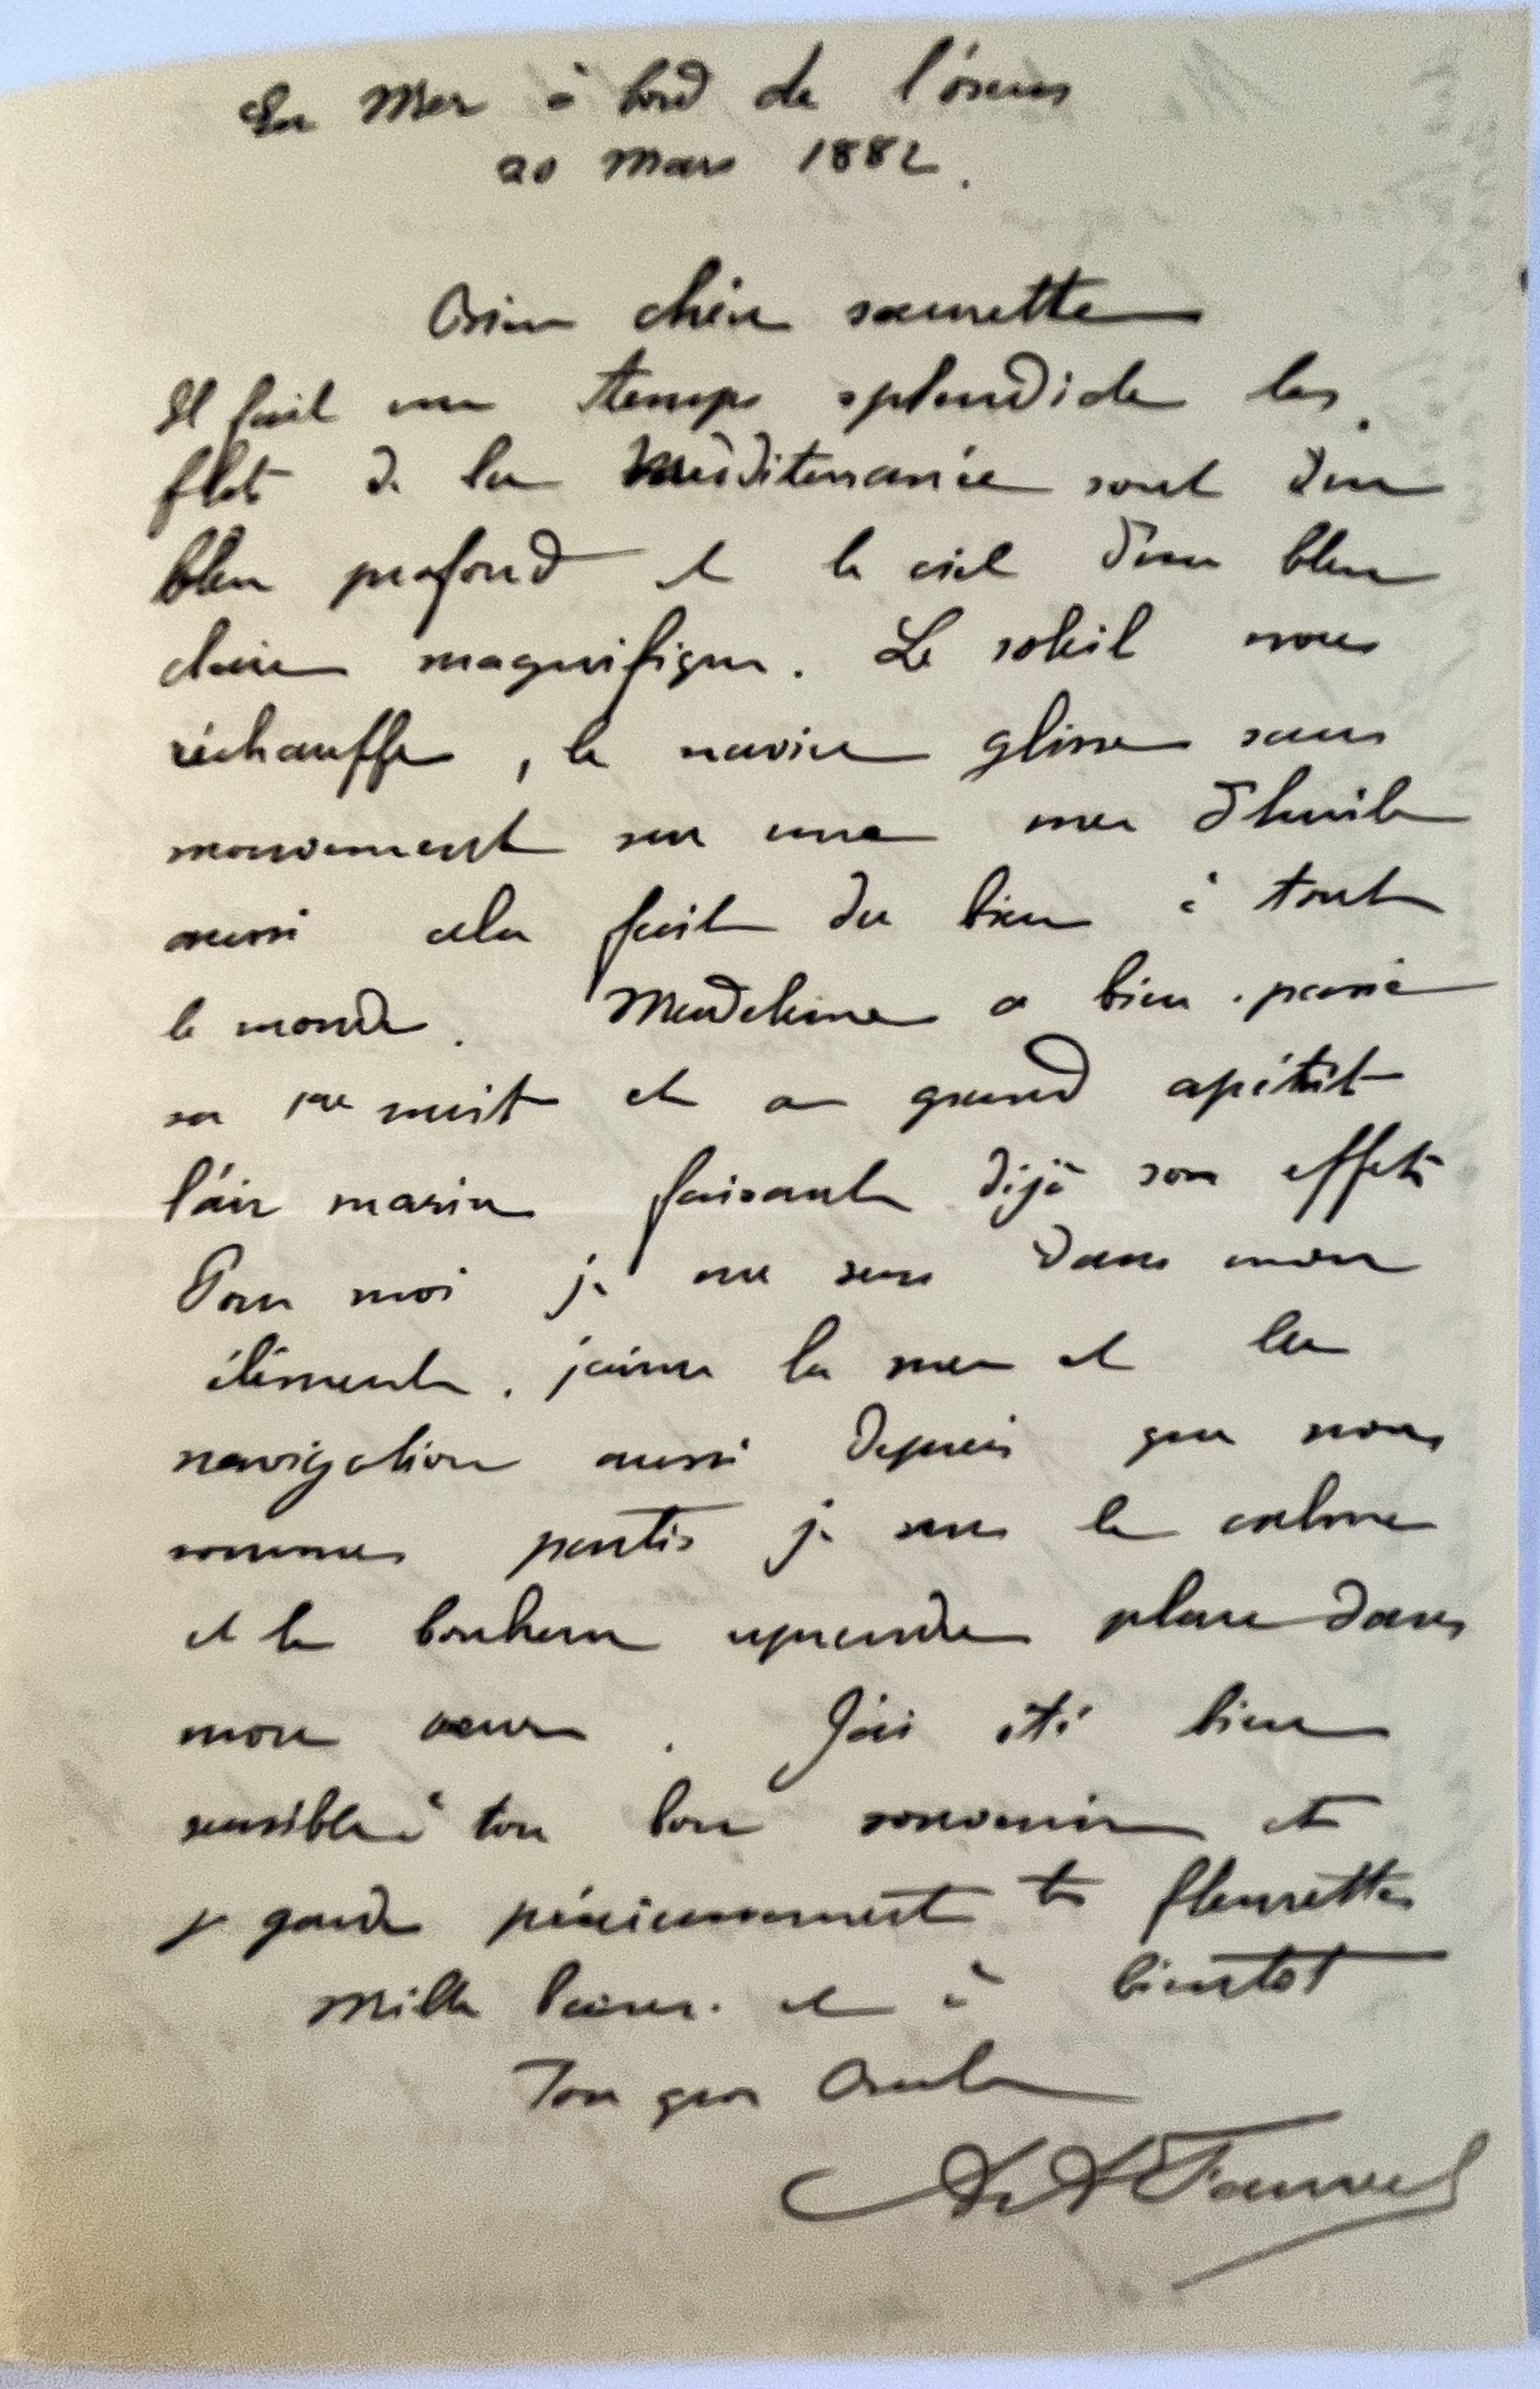 En Mer à bord de l'Oxus
20 Mars 1882.
chère sœurette
Il fait un temps splendide les
flots de la Méditerranée sont d'un
bleu profond et le ciel d'un bleu
clair magnifique. Le soleil nous
réchauffe, le navire glisse sans
mouvement sur une mer d'huile
aussi cela fait du bien à tout
le monde. Madeleine a bien passé
sa 1ère nuit et a grand apétit
l'air marin faisant déjà son effet
Pour moi je me sens dans mon
élément. j'aime la mer et la
navigation aussi depuis que nous
sommes partis je sens le calme
et le bonheur reprendre place dans
mon cœur. J'ai été bien
sensible à ton bon souvenir et
je garde précieusement tes fleurettes
Mille baisers. et à bientot
Ton gros